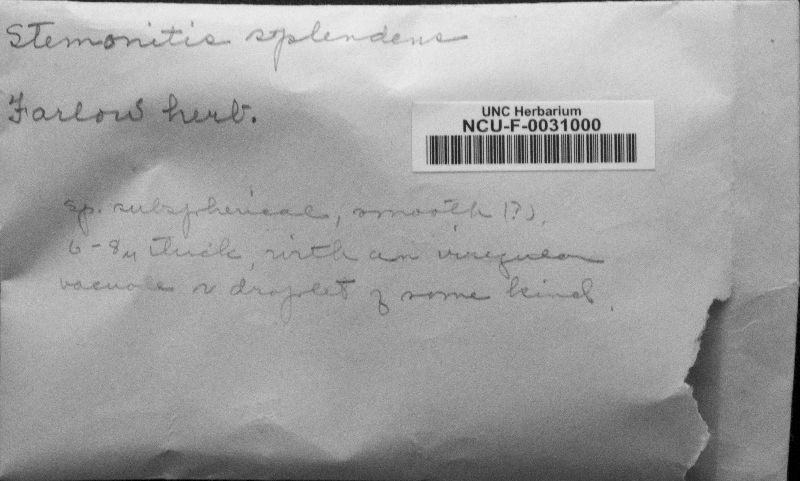 Stemonitis splendens
Farlow herb.
UNC Herbarium
NCU-F-0031000
sp. subspherical, smooth (?),
6-8µ thick, with an irregular
vacuole or droplet of some kind.